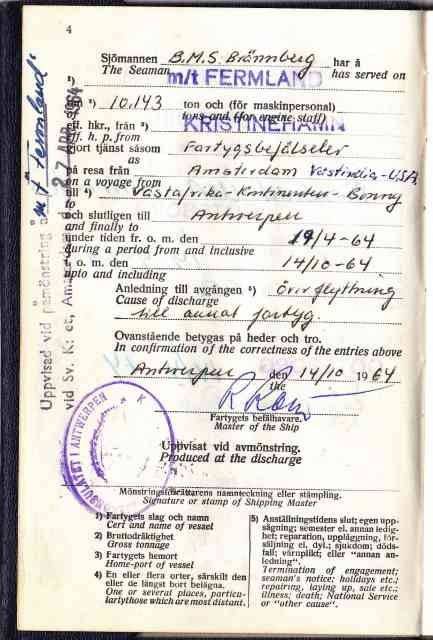 4
Sjömannen B.M.S. Brännberg har å
The Seaman m/t FERMLAND has served on
¹)
²) 10.143 ton och (för maskinpersonal)
tons and (for engine staff)
eff. hkr., från ³) KRISTINEHAMN
eff. h. p. from
gjort tjänst såsom Fartygsbefälselev
as
på resa från Amsterdam Västindien-USA
on a voyage from
till ⁴) Västafrika-Kontinenten-Bonny
to
och slutligen till Antwerpen
and finally to
under tiden fr. o. m. den 19/4-64
during a period from and inclusive
t. o. m. den 14/10-64
upto and including
Anledning till avgången ⁵) överflyttning
Cause of discharge
till annat fartyg.
Ovanstående betygas på heder och tro.
In confirmation of the correctness of the entries above
Antwerpen den 14/10 1964
the
Fartygets befälhavare.
Master of the Ship
Uppvisat vid avmönstring.
Produced at the discharge
Mönstringsförrättarens namnteckning eller stämpling.
Signature or stamp of Shipping Master
1) Fartygets slag och namn
Cert and name of vessel
2) Bruttodräktighet
Gross tonnage
3) Fartygets hemort
Home-port of vessel
4) En eller flera orter, särskilt den
eller de längst bort belägna.
One or several places, particu-
larly those which are most distant.
5) Anställningstidens slut; egen upp-
sägning; semester el. annan ledig-
het; reparation, uppläggning, för-
säljning el. dyl.; sjukdom; döds-
fall; värnplikt; eller "annan an-
ledning".
Termination of engagement;
seaman's notice; holidays etc.;
repairing, laying up, sale etc.;
illness; death; National Service
or "other cause".
Uppvisad vid påmönstring å m/t Fermland
vid Sv. K:et, 27 APR. 1964
SULATET I ANTWERPEN